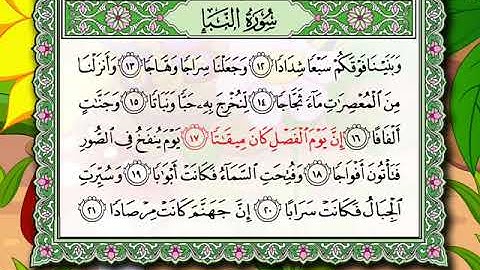 سُورَةُ النَّبَإِ
وَبَنَيْنَا فَوْقَكُمْ سَبْعًا شِدَادًا ١٢ وَجَعَلْنَا سِرَاجًا وَهَّاجًا ١٣ وَأَنزَلْنَا
مِنَ الْمُعْصِرَاتِ مَاءً ثَجَّاجًا ١٤ لِّنُخْرِجَ بِهِ حَبًّا وَنَبَاتًا ١٥ وَجَنَّاتٍ
أَلْفَافًا ١٦ إِنَّ يَوْمَ الْفَصْلِ كَانَ مِيقَاتًا ١٧ يَوْمَ يُنفَخُ فِي الصُّورِ
فَتَأْتُونَ أَفْوَاجًا ١٨ وَفُتِحَتِ السَّمَاءُ فَكَانَتْ أَبْوَابًا ١٩ وَسُيِّرَتِ
الْجِبَالُ فَكَانَتْ سَرَابًا ٢٠ إِنَّ جَهَنَّمَ كَانَتْ مِرْصَادًا ٢١